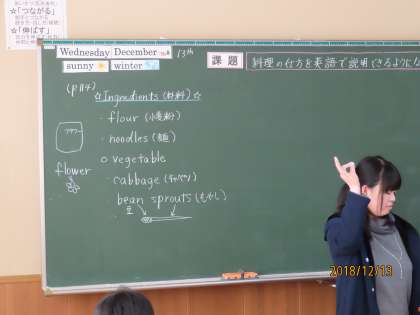 ☆「つながる」
☆「伸ばす」
Wednesday December 13th
sunny winter
課題 料理の仕方を英語で説明できるようにな
(p114)
☆Ingredients (材料)☆
・flour (小麦粉)
・noodles (麺)
○ vegetable
・cabbage (キャベツ)
bean sprouts (もやし)
豆
flower
2018/12/13